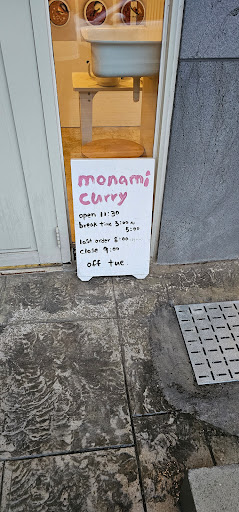 monami
curry
open 11:30
break time 3:00~
5:00
last order 8:00
close 9:00
off tue.